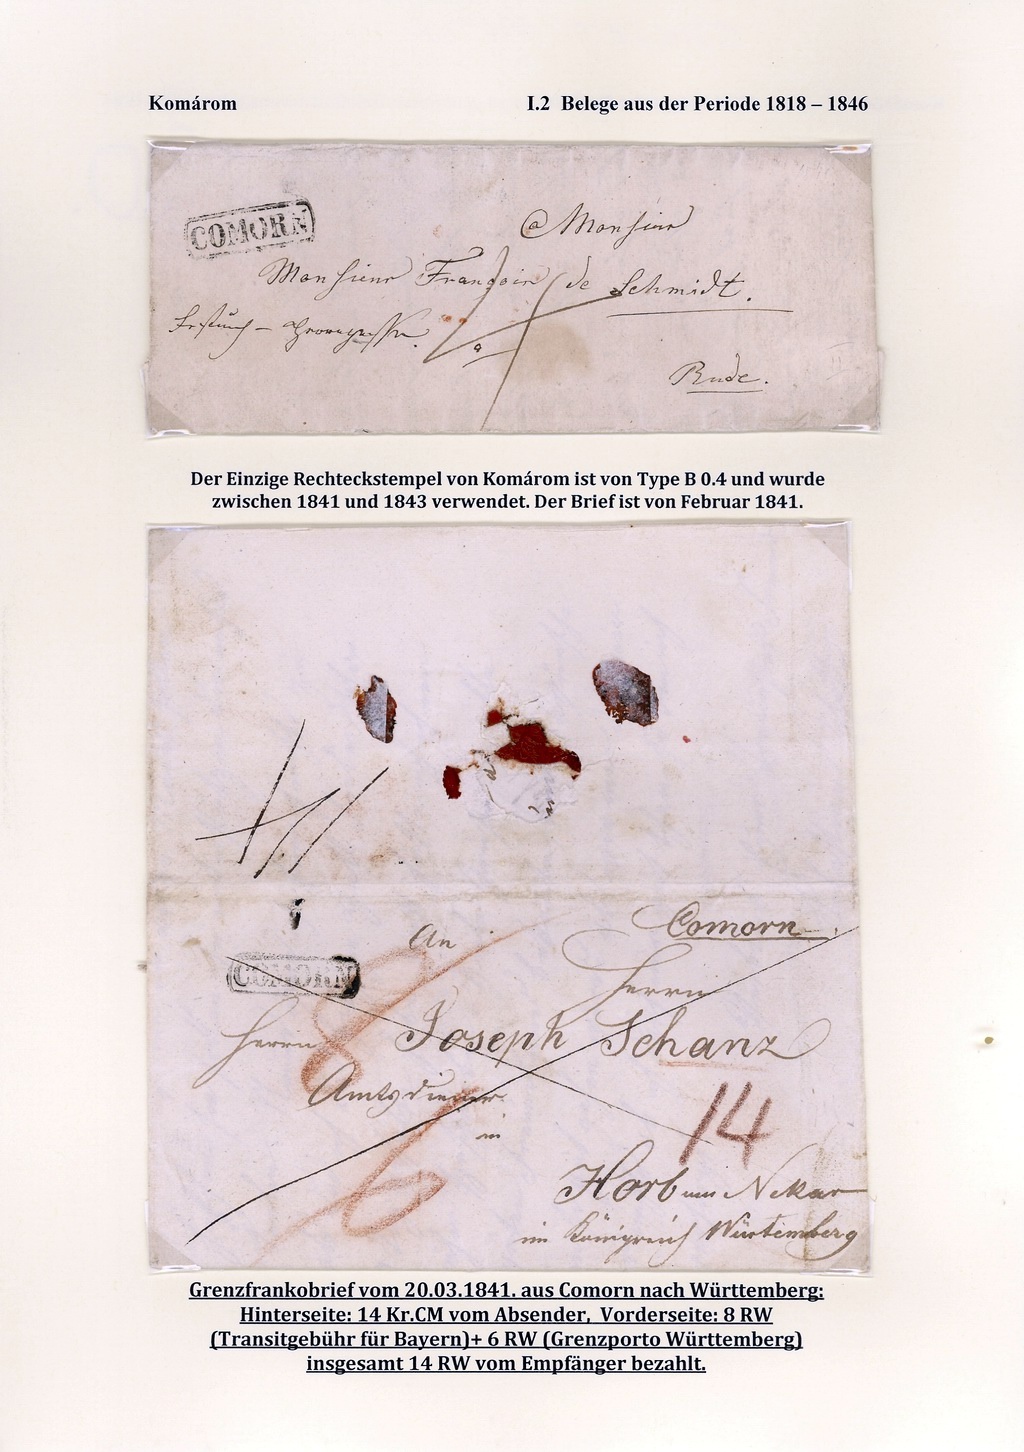 Komárom
I.2 Belege aus der Periode 1818 – 1846
COMORN
a Monsieur
Monsieur François de Schmidt.
Bude.
Der Einzige Rechteckstempel von Komárom ist von Type B 0.4 und wurde
zwischen 1841 und 1843 verwendet. Der Brief ist von Februar 1841.
Comorn
An
COMORN
Herrn
Herrn Joseph Schanz
8
Amtsdiener
14
in
6
Horb am Nekar
im Königreich Würtemberg
Grenzfrankobrief vom 20.03.1841. aus Comorn nach Württemberg:
Hinterseite: 14 Kr.CM vom Absender, Vorderseite: 8 RW
(Transitgebühr für Bayern)+ 6 RW (Grenzporto Württemberg)
insgesamt 14 RW vom Empfänger bezahlt.